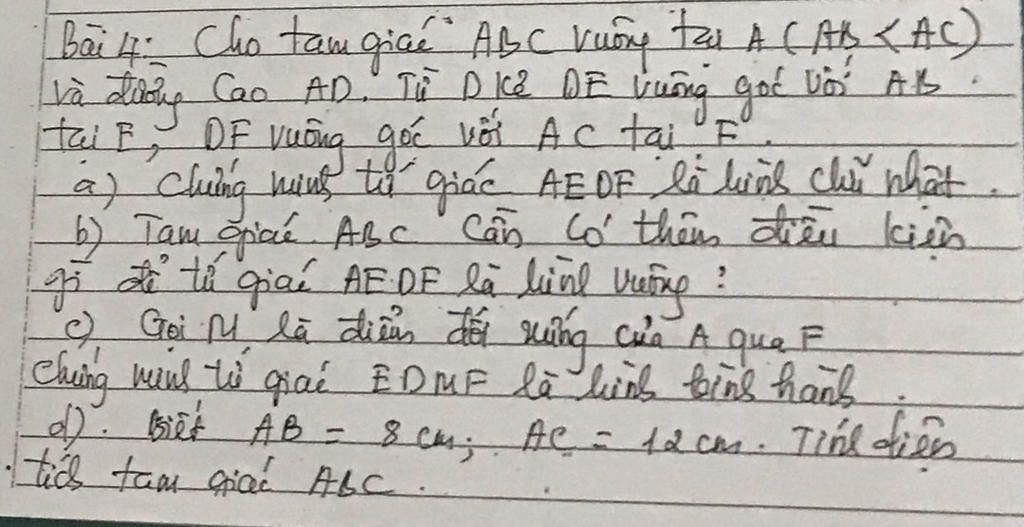 Bài 4: Cho tam giác ABC vuông tại A (AB < AC)
và đường cao AD. Từ D kẻ DE vuông góc với AB
tại E, DF vuông góc với AC tại F.
a) Chứng minh tứ giác AEDF là hình chữ nhật.
b) Tam giác ABC cần có thêm điều kiện
gì để tứ giác AEDF là hình vuông?
c) Gọi M là điểm đối xứng của A qua F
Chứng minh tứ giác EDMF là hình bình hành.
d). Biết AB = 8 cm; AC = 12 cm. Tính diện
tích tam giác ABC.